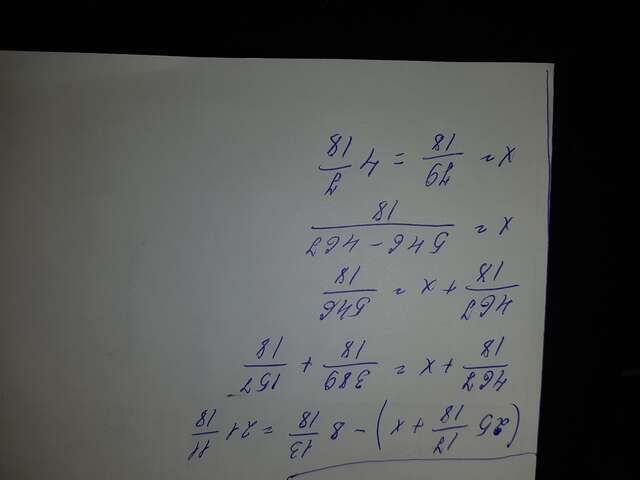 (25 17/18 + x) - 8 13/18 = 21 11/18
467/18 + x = 389/18 + 157/18
467/18 + x = 546/18
x = (546 - 467)/18
x = 79/18 = 4 7/18